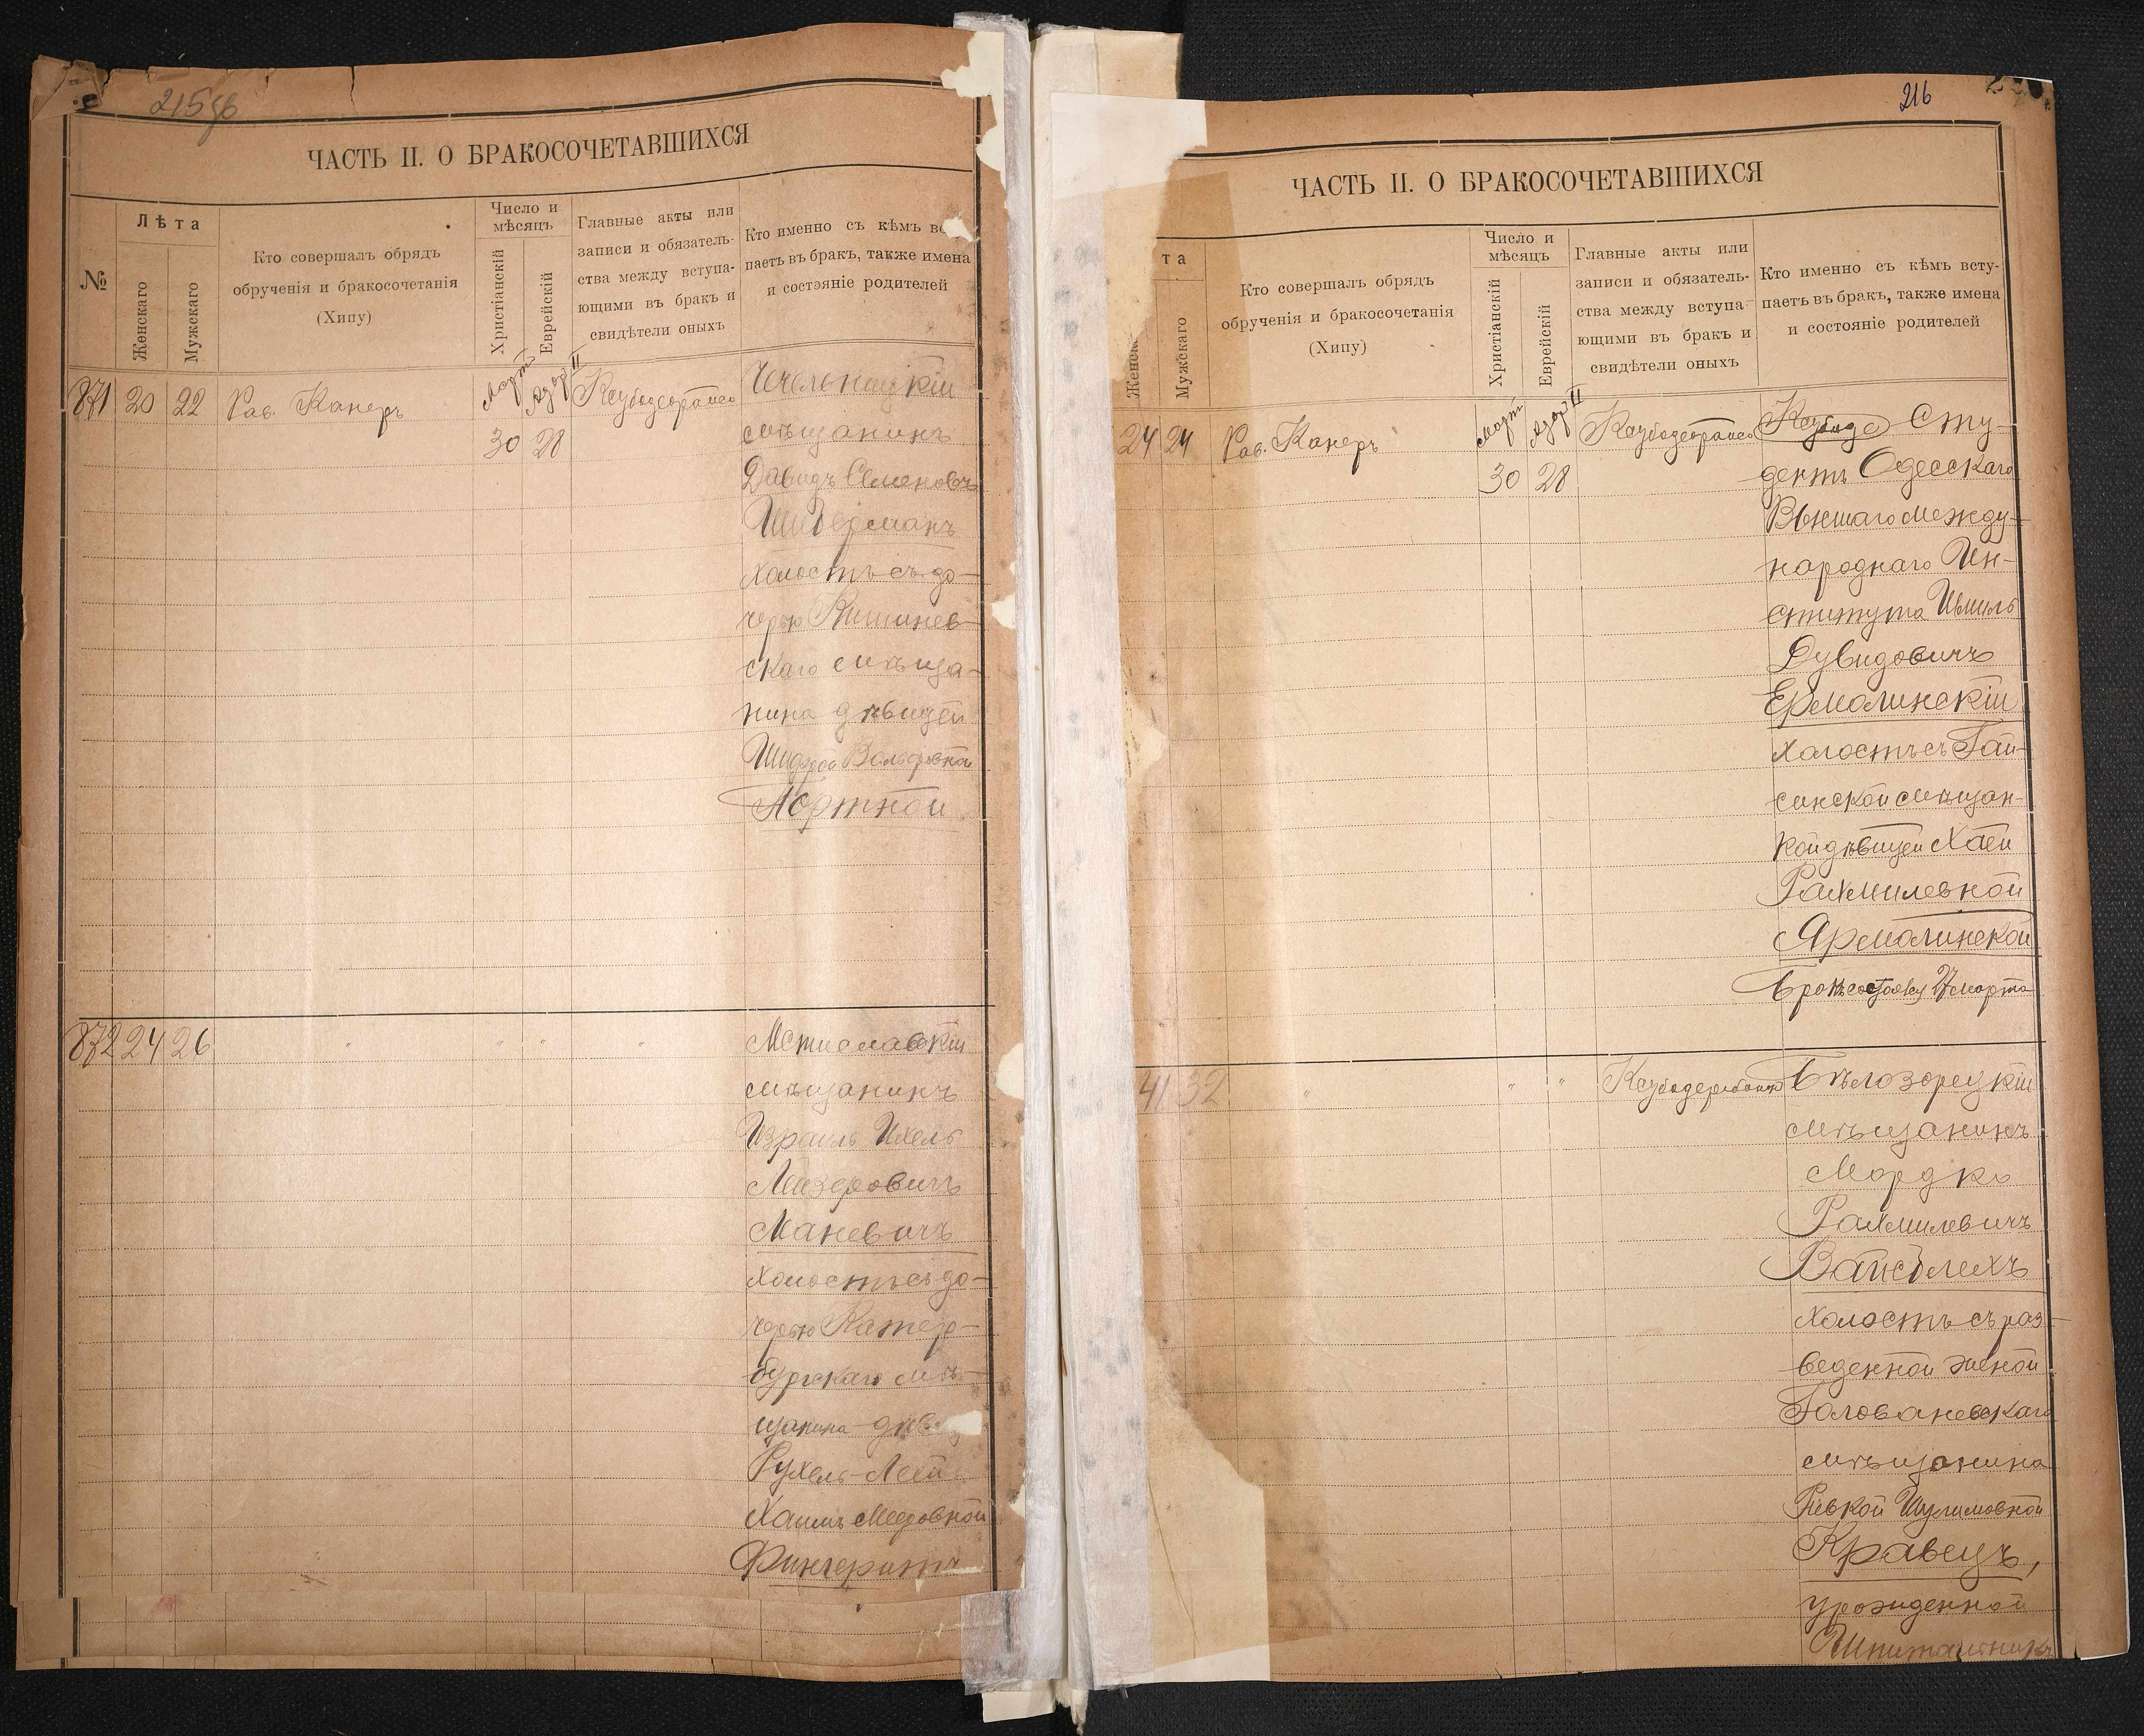 215 об
ЧАСТЬ II. О БРАКОСОЧЕТАВШИХСЯ
№
Лѣта
Женскаго
Мужскаго
Кто совершалъ обрядъ
обрученія и бракосочетанія
(Хипу)
Число и
мѣсяцъ
Христіанскій
Еврейскій
Главные акты или
записи и обязатель-
ства между вступа-
ющими въ бракъ и
свидѣтели оныхъ
Кто именно съ кѣмъ вс
паетъ въ бракъ, также имена
и состояніе родителей
871 20 22 Рав. Канеръ
Март Адар II
30 28
Чечельницкій
мѣщанинъ
Давидъ Семеновъ
холостъ съ до-
черью Кишинев-
скаго мѣща-
нина дѣвицей
Вольфовна
Портной
872 24 26 " " " "
Мстиславскій
мѣщанинъ
Израиль Ихель
Лейзеровичъ
Маневичъ
холостъ съ до-
черью Катер-
бургскаго мѣ-
щанина дѣв
Рухель-Леей
Хаимъ Мееровной
216
ЧАСТЬ II. О БРАКОСОЧЕТАВШИХСЯ
та
Женск
Мужскаго
Кто совершалъ обрядъ
обрученія и бракосочетанія
(Хипу)
Число и
мѣсяцъ
Христіанскій
Еврейскій
Главные акты или
записи и обязатель-
ства между вступа-
ющими въ бракъ и
свидѣтели оныхъ
Кто именно съ кѣмъ всту-
паетъ въ бракъ, также имена
и состояніе родителей
24 24 Рав. Канеръ
Март Адар II
30 28
Сту-
дентъ Одесскаго
Высшаго Между-
народнаго Ин-
ститута
Дувидовичъ
Ермолинскій
холостъ съ Гай-
синской мѣщан-
кой дѣвицей Хаей
Рахмилевной
Ярмолинской
41 32 " " "
Бѣлозорецкій
мѣщанинъ
Мордко
Рахмилевичъ
Вайсблехъ
холостъ съ раз-
веденной женой
Голованевскаго
мѣщанина
Ривкой Шулимовной
Кравецъ,
урожденной